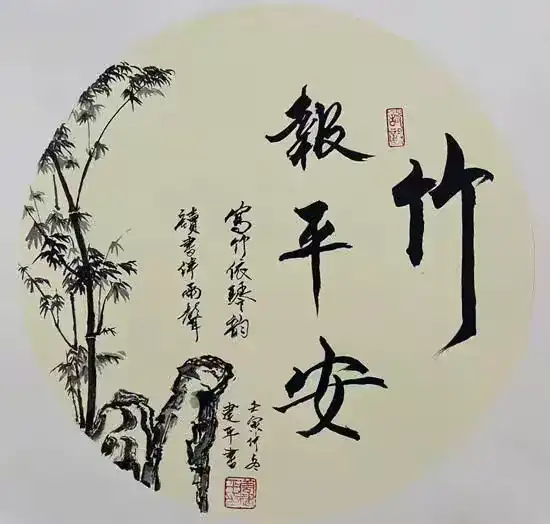 竹
報平安
寫竹依琴韵
讀書伴雨聲
壬寅仲冬
建平書